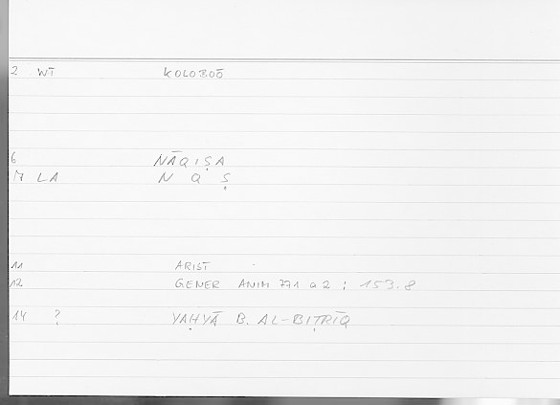 2 WT KOLOBOÕ
6 NĀQIṢA
7 LA N Q Ṣ
11 ARIST
12 GENER ANIM 771 a 2 ; 153.8
14 ? YAḤYĀ B. AL-BIṬRĪQ